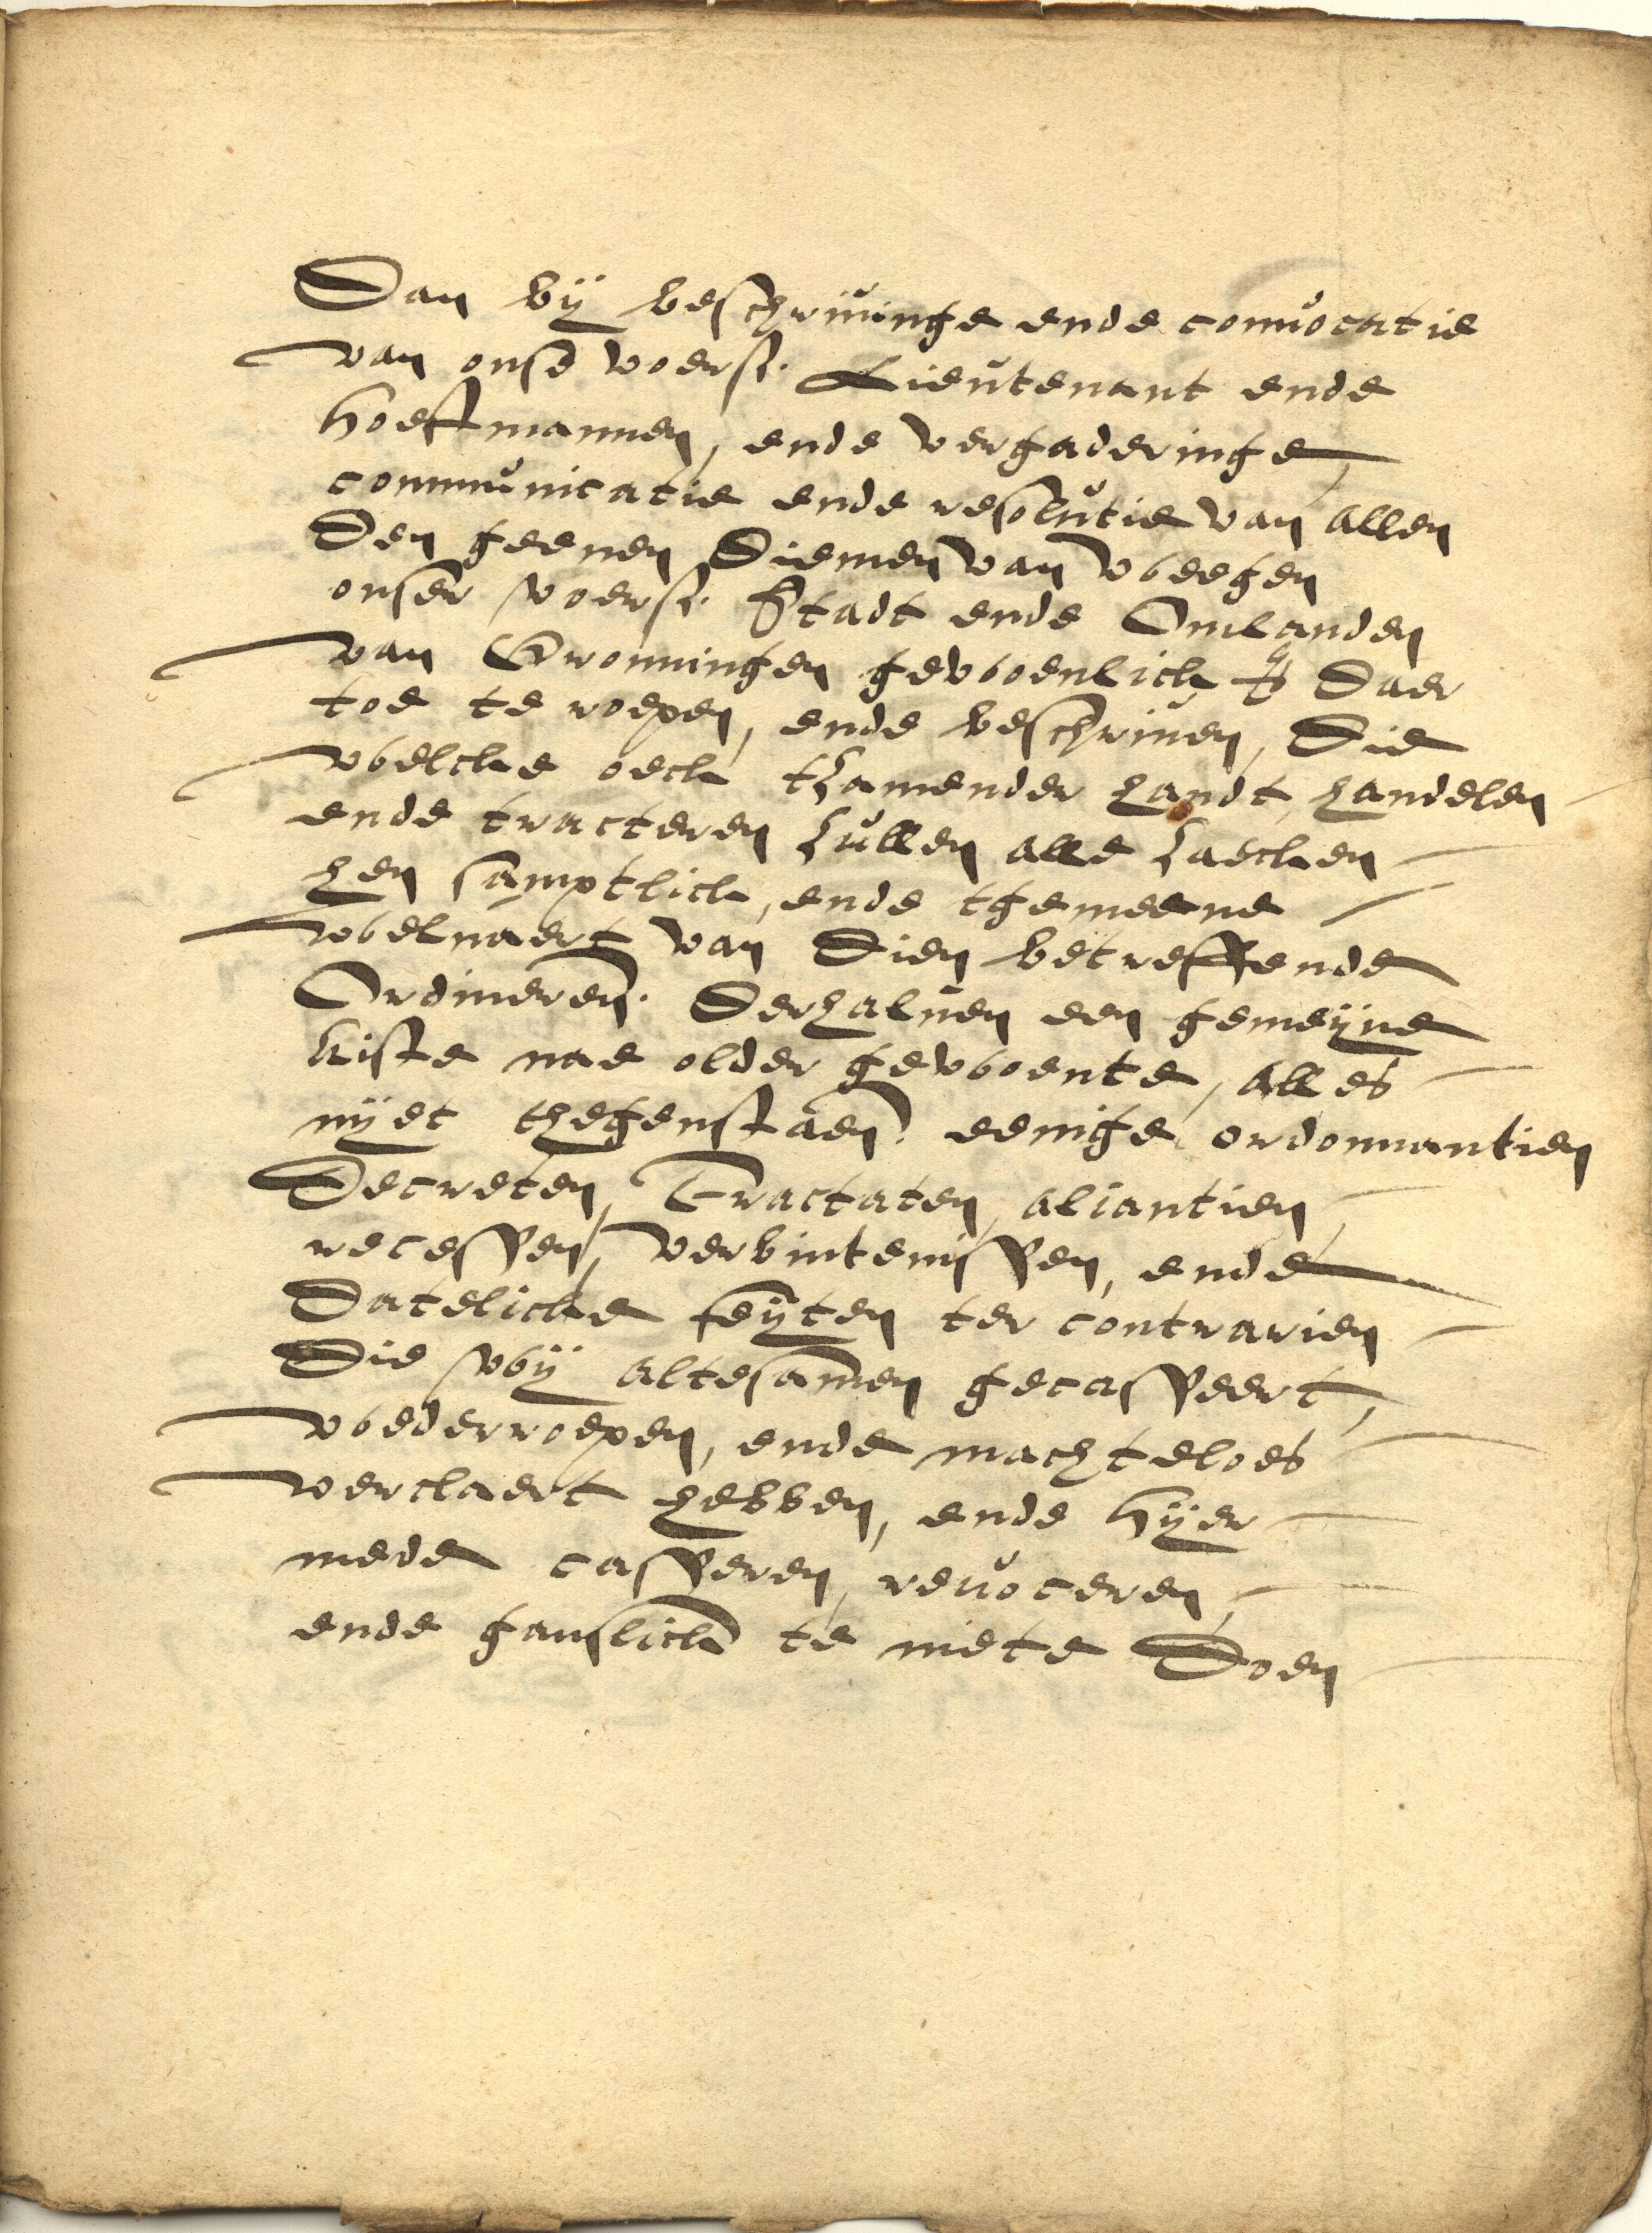 Dan bij beschrivinge ende convocatie
van onse voers. Lieutenant ende
Hoeftmannen, ende vergaderinge,
communicatie ende resolutie van allen
den geenen diemen van weegen
onser voers. Stadt ende Omlanden
van Gronningen gewoenlick is daer
toe te roepen, ende beschriven, die
welcke oeck tzamender handt, handelen
ende tracteren zullen alle zaecken
hen samptlick, ende tgemeene
welvaert van dien betreffende
Ordineren. Derhalven een gemeijne
kiste nae older gewoente, alles
nijet thegenstaen. eenige ordonnantien
Decreten, Tractaten, aliantien,
recessen, verbintenissen, ende
Datelicke feijten ter contrarien
Die wij altesamen gecasseert,
wederroepen, ende machteloes
verclaert hebben, ende hijer
mede casseren, revoceren,
ende ganslick te niete Doen